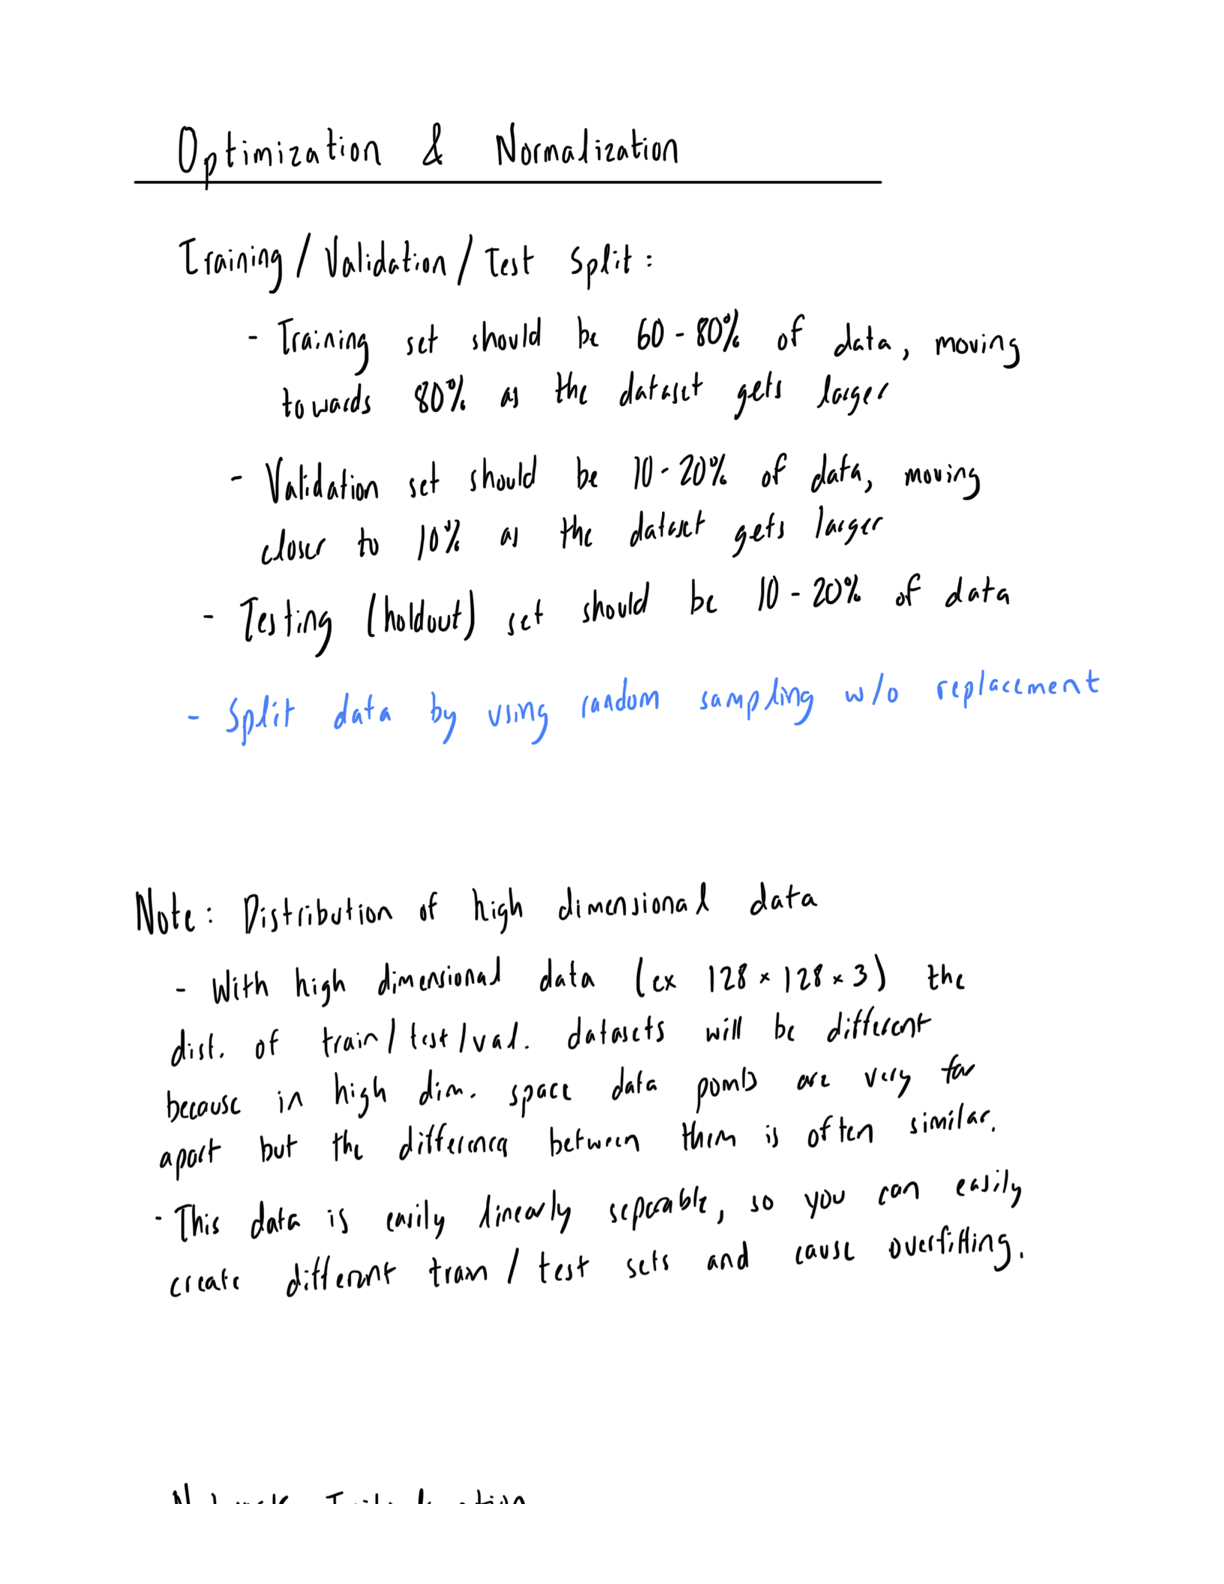 Optimization & Normalization
Training / Validation / Test Split:
- Training set should be 60 - 80% of data, moving
towards 80% as the dataset gets larger
- Validation set should be 10 - 20% of data, moving
closer to 10% as the dataset gets larger
- Testing (holdout) set should be 10 - 20% of data
- Split data by using random sampling w/o replacement
Note: Distribution of high dimensional data
- With high dimensional data (ex 128 × 128 × 3) the
dist. of train / test / val. datasets will be different
because in high dim. space data points are very far
apart but the difference between them is often similar.
- This data is easily linearly separable, so you can easily
create different train / test sets and cause overfitting.